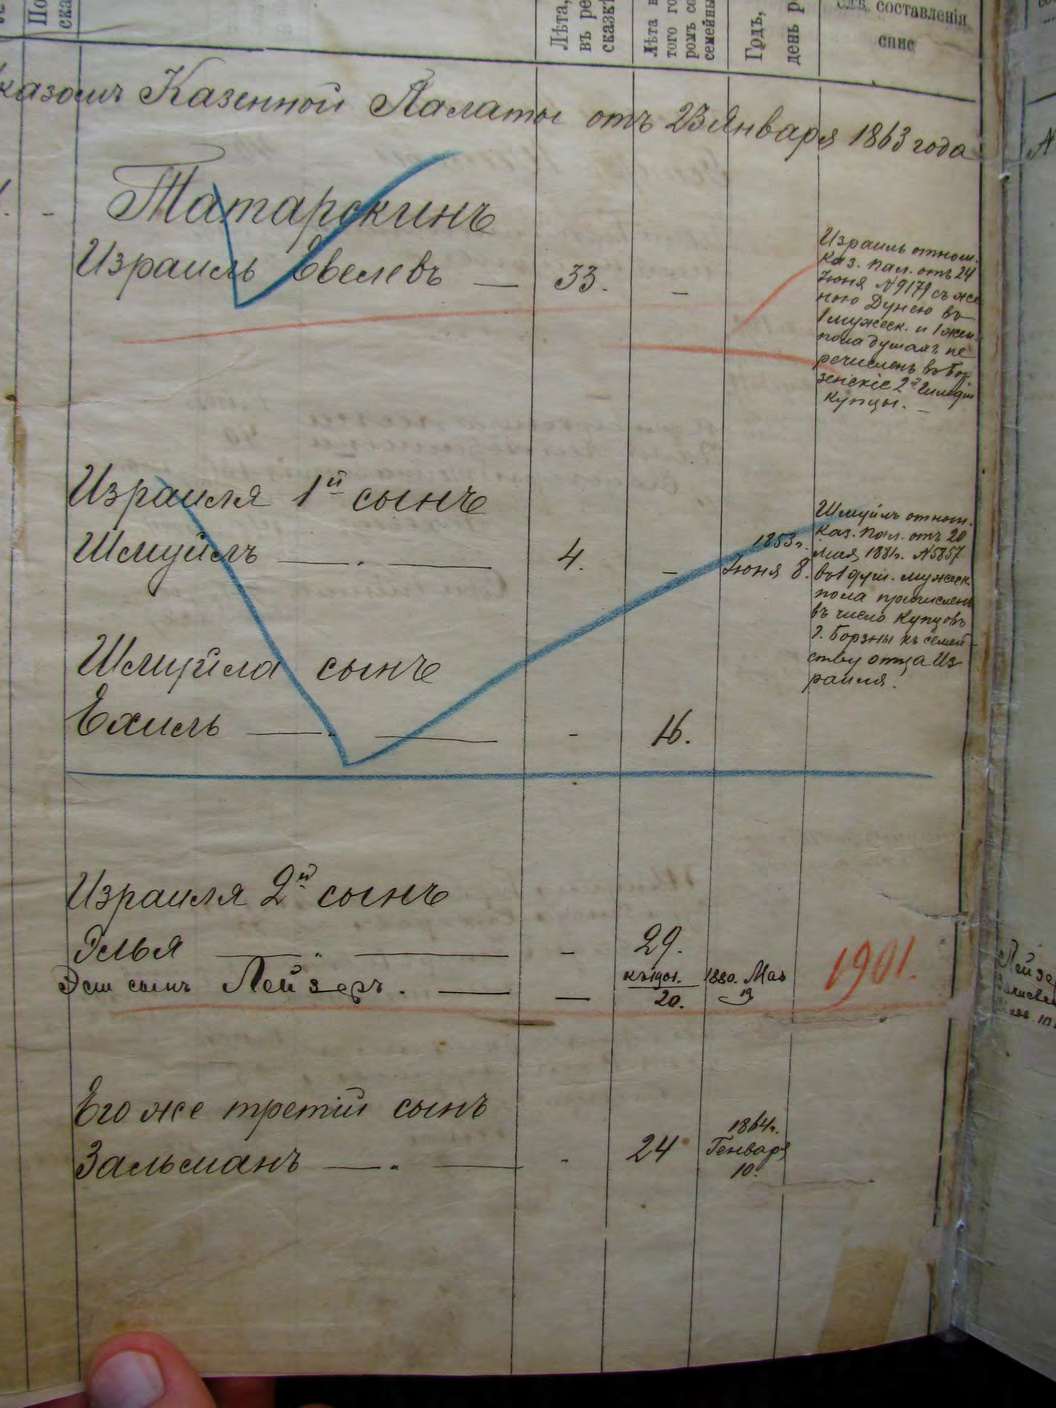 По
ска
Лѣта,
въ ре
сказкѣ
Лѣта в
того го
ромъ со
семейны
Годъ,
день р
составленія
спис
казомъ Казенной Палаты отъ 23 Января 1863 года
Татарскинъ
Израиль Евелевъ — 33. –
Израиль отнош.
Каз. Пал. отъ 24
Іюня № 9179 съ же
ною Дунею въ
1 мужеск. и 1 жен.
пола душахъ пе
речисленъ въ Бор
зенскіе 2й Гильдіи
купцы. —
Израиля 1й сынъ
Шмуйлъ — . — 4. –
1853 г.
Іюня 8.
Шмуйлъ отнош.
Каз. Пал. отъ 20
Мая 1881 г. № 5857
въ 1 душ. мужеск
пола причисленъ
въ число купцовъ
г. Борзны къ семей
ству отца Из-
раиля.
Шмуйла сынъ
Ехиль — . — - 16.
Израиля 2й сынъ
Элья — " — – 29.
Эли сынъ Лейзеръ. — —
20.
1880. Мая
19
1901.
Его же третій сынъ
Зальманъ — . — - 24
1864 г.
Генваря
10.
Лейзе